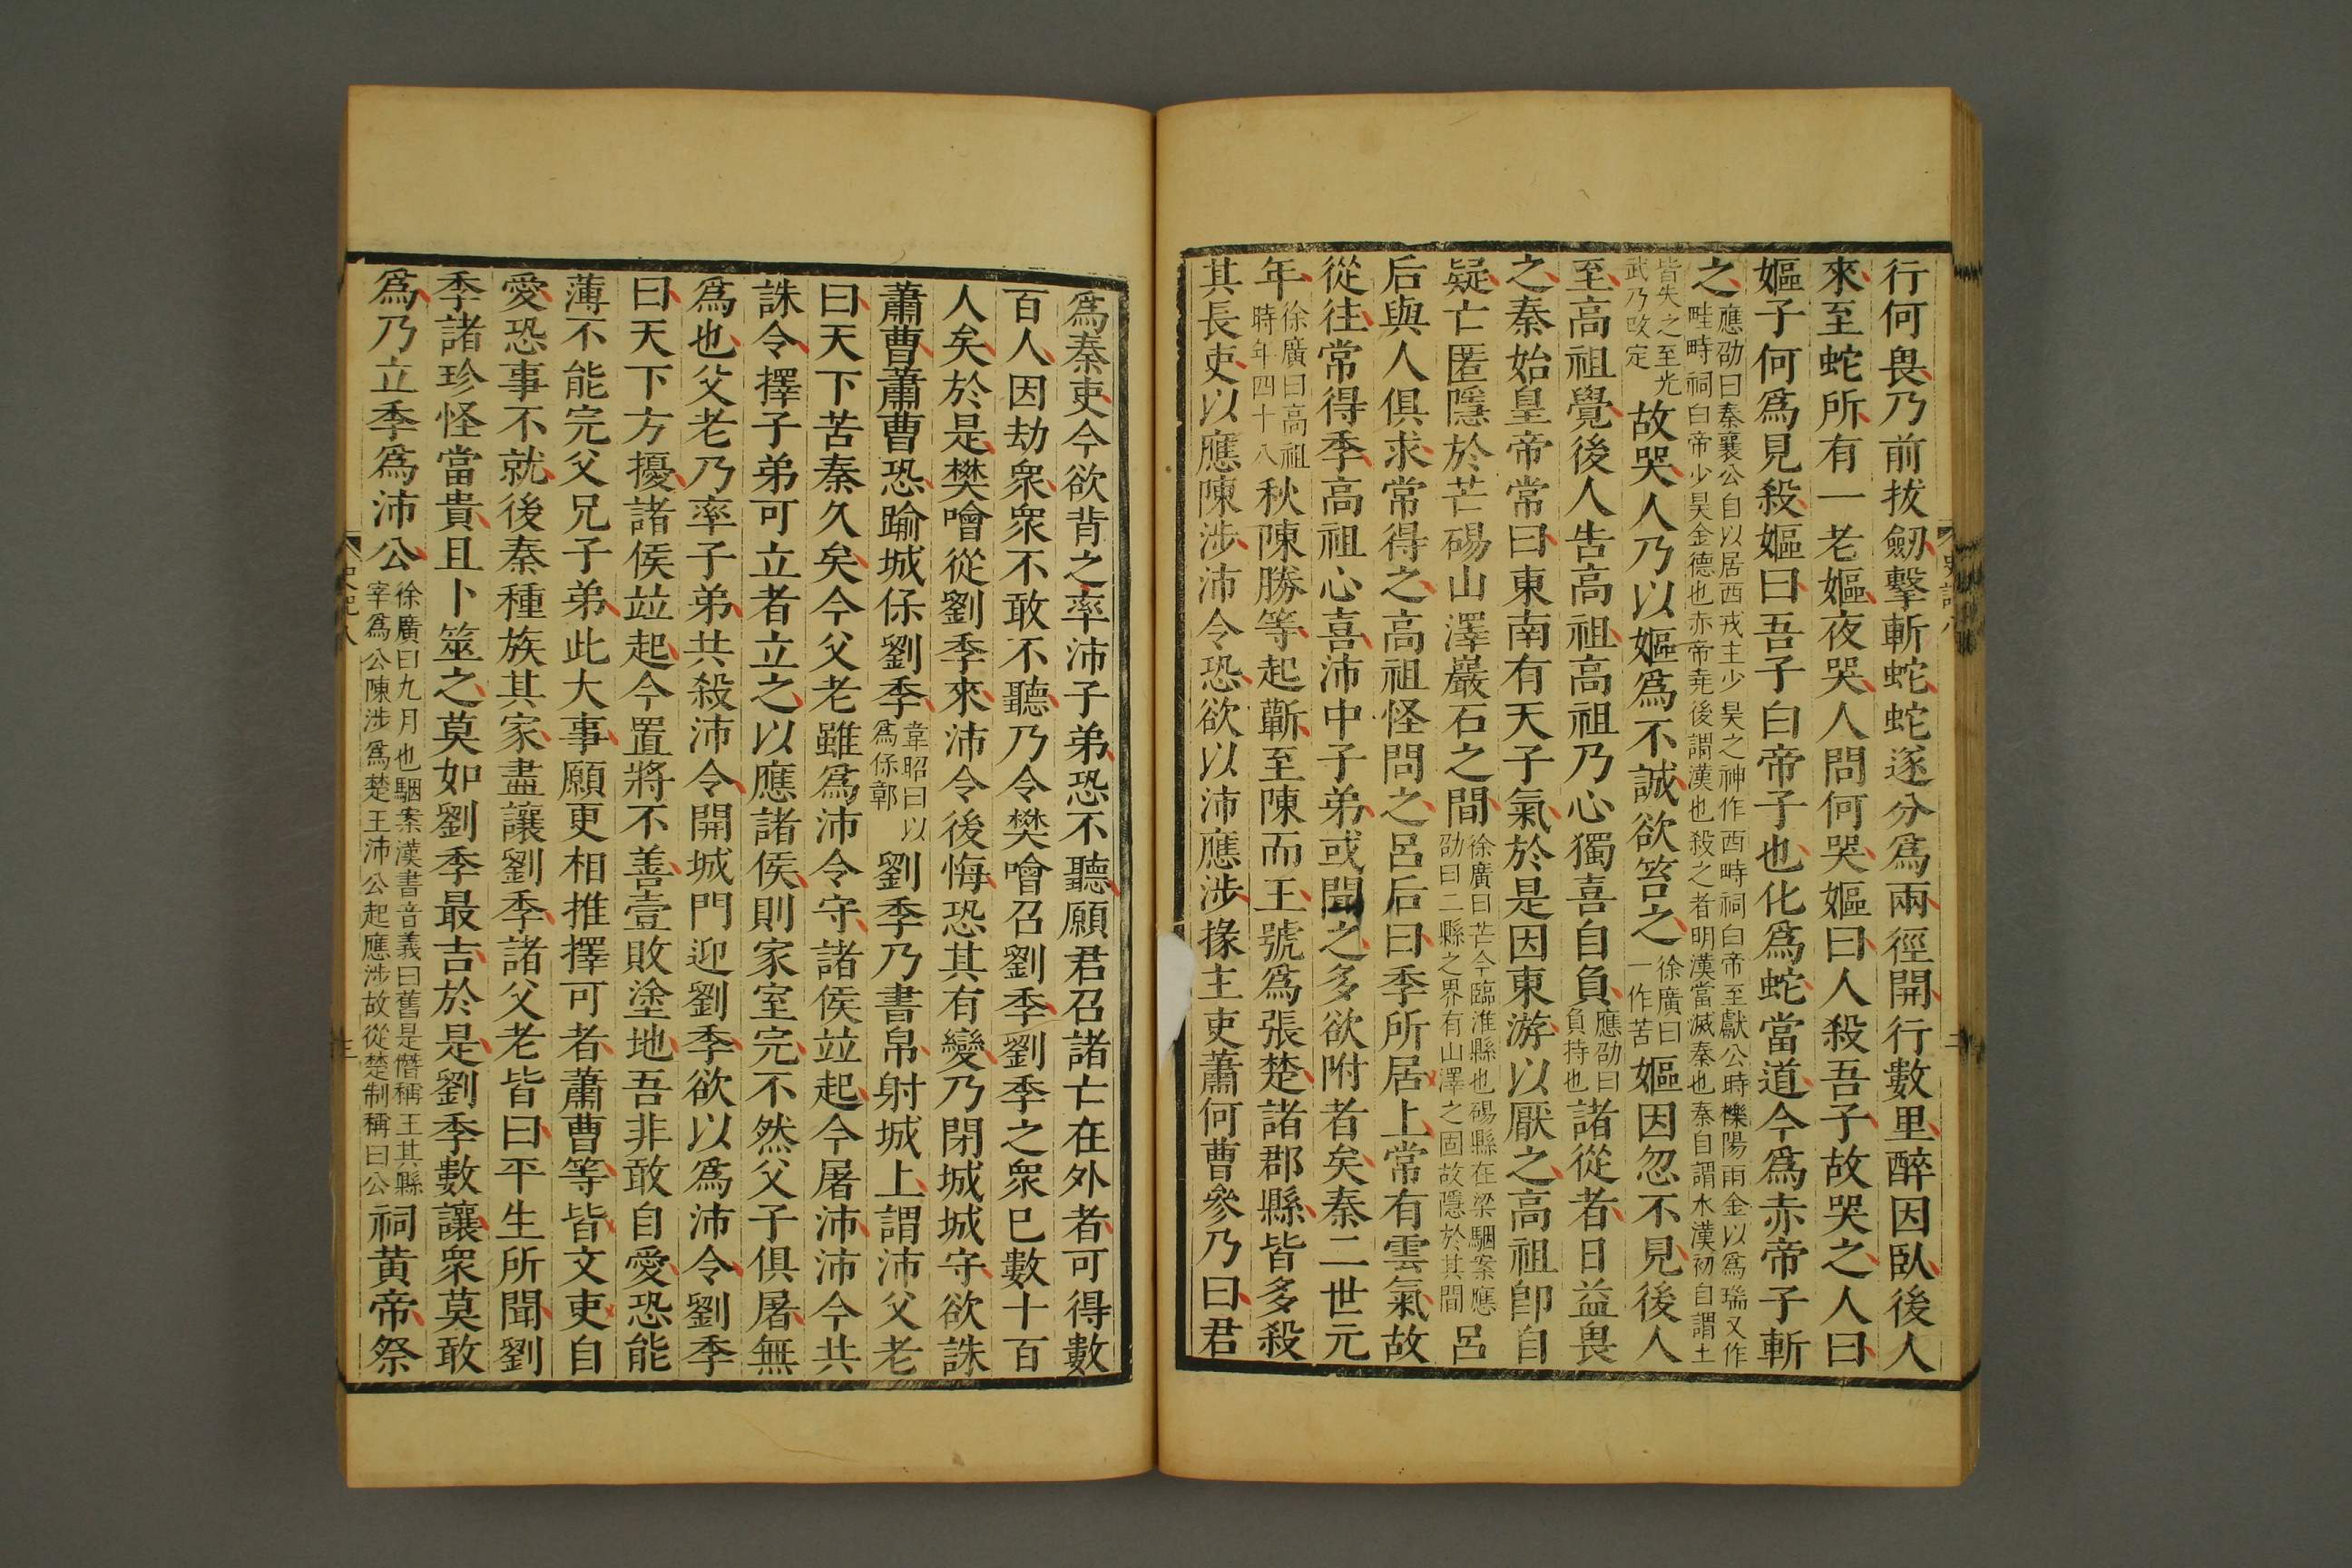 行何畏乃前拔劒擊斬蛇蛇遂分爲兩徑開行數里醉因臥後人
來至蛇所有一老嫗夜哭人問何哭嫗曰人殺吾子故哭之人曰
嫗子何爲見殺嫗曰吾子白帝子也化爲蛇當道今爲赤帝子斬
之應劭曰秦襄公自以居西戎主少昊之神作西畤祠白帝至獻公時櫟陽雨金以爲瑞又作畦畤祠白帝少昊金德也赤帝堯後謂漢也殺之者明漢當滅秦也秦自謂水漢初自謂土
皆失之至光武乃改定故哭人乃以嫗爲不誠欲笞之徐廣曰一作苦嫗因忽不見後人
至高祖覺後人告高祖高祖乃心獨喜自負應劭曰負持也諸從者日益畏
之秦始皇帝常曰東南有天子氣於是因東游以厭之高祖卽自
疑亡匿隱於芒碭山澤巖石之間徐廣曰芒今臨淮縣也碭縣在梁駰案應劭曰二縣之界有山澤之固故隱於其間呂
后與人俱求常得之高祖怪問之呂后曰季所居上常有雲氣故
從往常得季高祖心喜沛中子弟或聞之多欲附者矣秦二世元
年徐廣曰高祖時年四十八秋陳勝等起蘄至陳而王號爲張楚諸郡縣皆多殺
其長吏以應陳涉沛令恐欲以沛應涉掾主吏蕭何曹參乃曰君
爲秦吏今欲背之率沛子弟恐不聽願君召諸亡在外者可得數
百人因劫衆衆不敢不聽乃令樊噲召劉季劉季之衆已數十百
人矣於是樊噲從劉季來沛令後悔恐其有變乃閉城城守欲誅
蕭曹蕭曹恐踰城保劉季韋昭曰以爲保鄣劉季乃書帛射城上謂沛父老
曰天下苦秦久矣今父老雖爲沛令守諸侯竝起今屠沛沛今共
誅令擇子弟可立者立之以應諸侯則家室完不然父子俱屠無
爲也父老乃率子弟共殺沛令開城門迎劉季欲以爲沛令劉季
曰天下方擾諸侯竝起今置將不善壹敗塗地吾非敢自愛恐能
薄不能完父兄子弟此大事願更相推擇可者蕭曹等皆文吏自
愛恐事不就後秦種族其家盡讓劉季諸父老皆曰平生所聞劉
季諸珍怪當貴且卜筮之莫如劉季最吉於是劉季數讓衆莫敢
爲乃立季爲沛公徐廣曰九月也駰案漢書音義曰舊是僭稱王其縣宰爲公陳涉爲楚王沛公起應涉故從楚制稱曰公祠黃帝祭